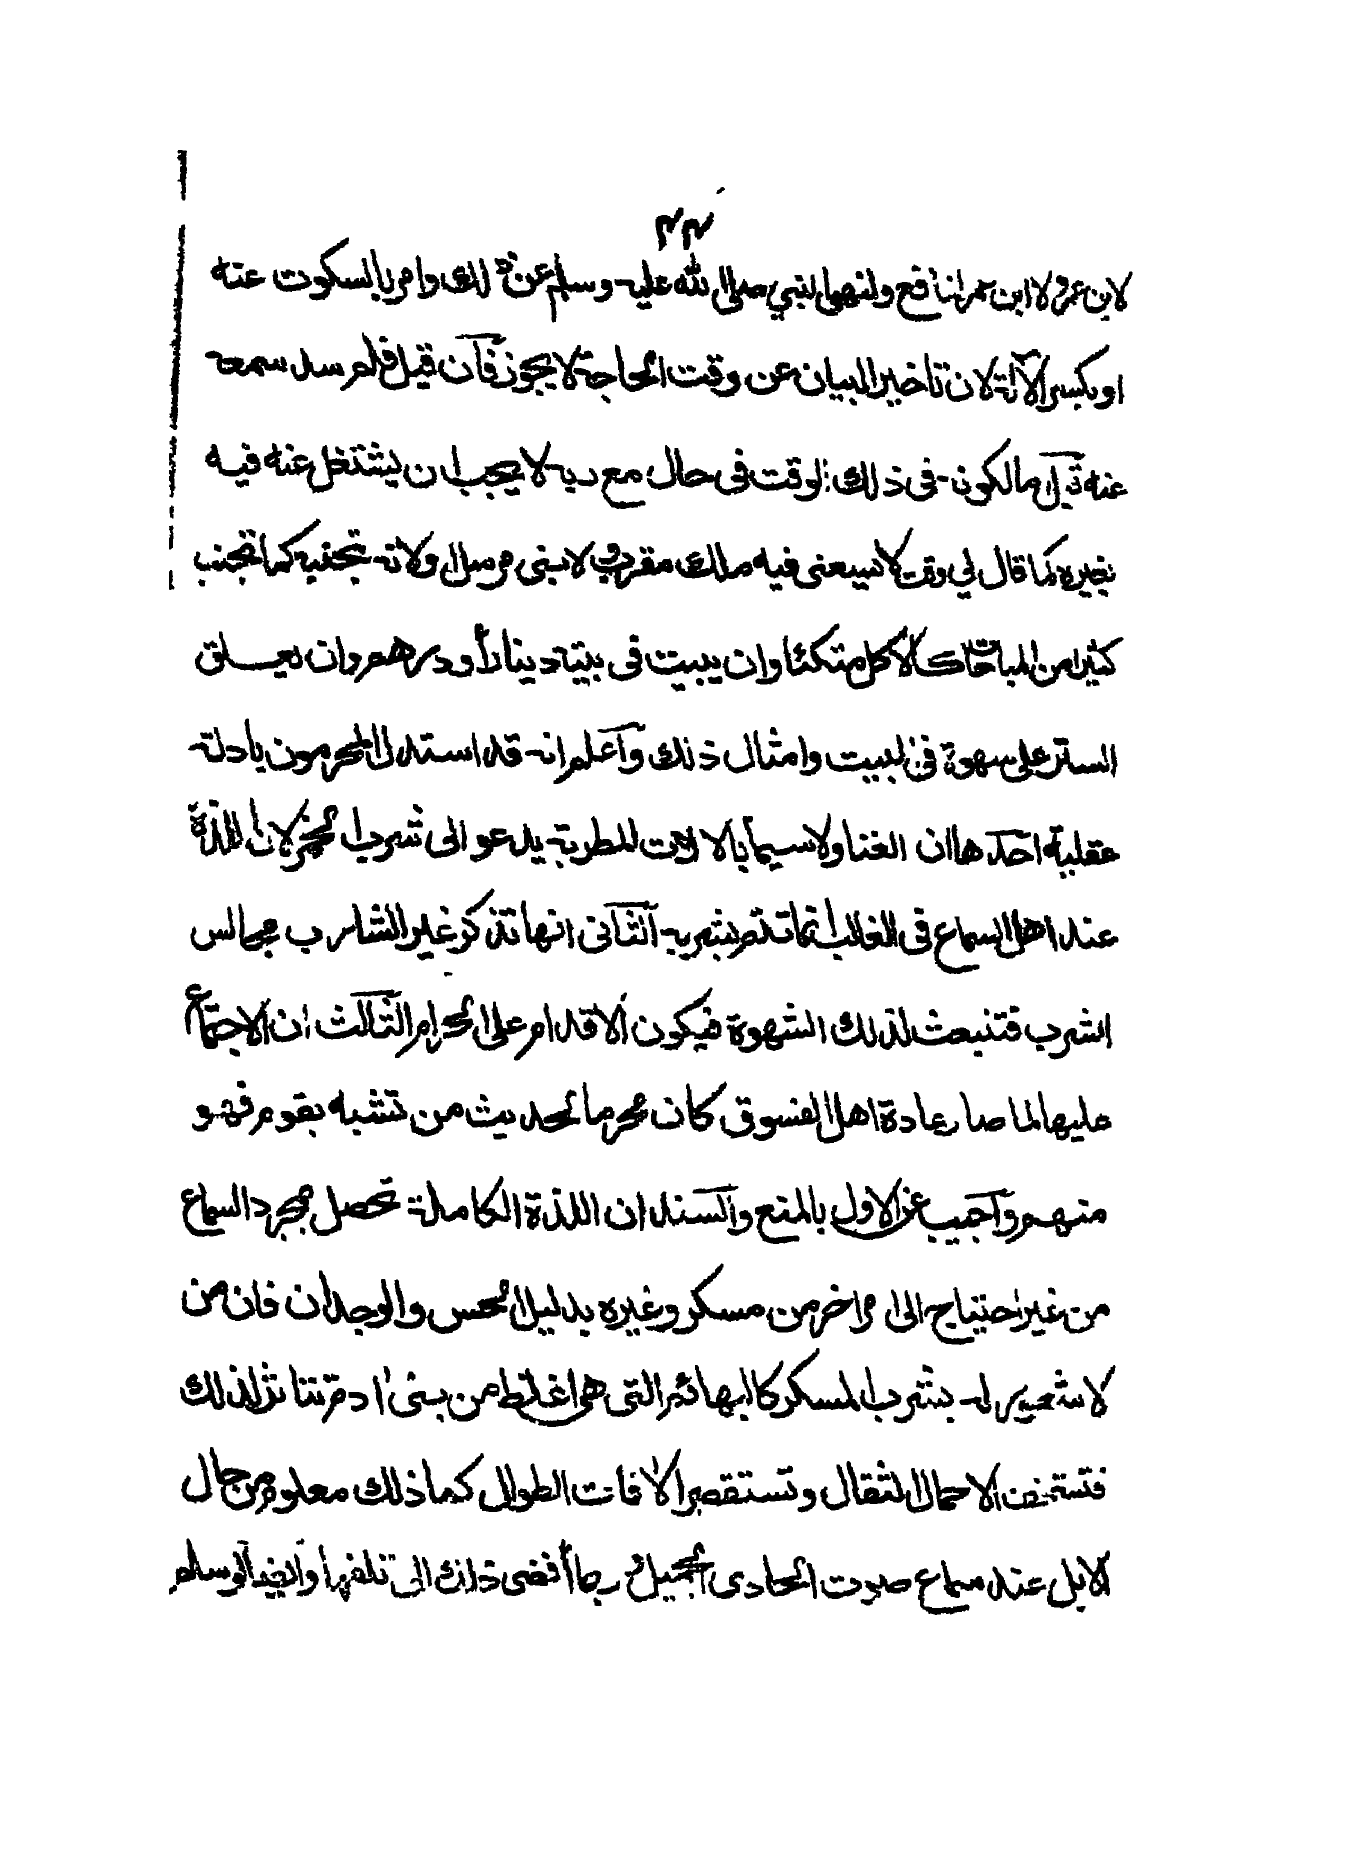 ٢٣
لابن عمر ولا ابن عمر لنافع ولنهى النبي صلى الله عليه وسلم عن ذلك وامر بالسكوت عنه
او بكسر الآلة لان تاخير البيان عن وقت الحاجة لا يجوز فان قيل فلم سد سمعه
عنه قيل مالكونه في ذلك الوقت في حال مع ربه لا يحب ان يشتغل عنه فيه
بغيره كما قال لي وقت لا يسعنى فيه ملك مقرب ولا نبى مرسل او لانه تجنبه كما تجنب
كثيرا من المباحات كالاكل متكئا وان يبيت في بيته دينارا أو درهم وان يعلق
الستر على سهوة في البيت وامثال ذلك واعلم انه قد استدل المحرمون بادلة
عقلية احدها ان الغنا ولا سيما بالالات المطربة يدعو الى شرب الخمر لان اللذة
عند اهل السماع في الغالب انما تتم بشربه الثانى انها تذكر غير الشارب مجالس
الشرب فتنبعث لذلك الشهوة فيكون الاقدام على الحرام الثالث ان الاجتماع
عليها لما صار عادة اهل الفسوق كان محرما لحديث من تشبه بقوم فهو
منهم واجيب عن الاول بالمنع والسند ان اللذة الكاملة تحصل بمجرد السماع
من غير احتياج الى امر اخر من مسكر وغيره بدليل الحس والوجدان فان من
لا شعور له بشرب المسكر كالبهائم التى هى اغلظ من بنى ادم تتاثر لذلك
فتستخف الاحمال الثقال وتستقصر الافات الطوال كما ذلك معلوم من جمال
الابل عند سماع صوت الحادى الجميل وربما أفضى ذلك الى تلفها وايضا لو سلم